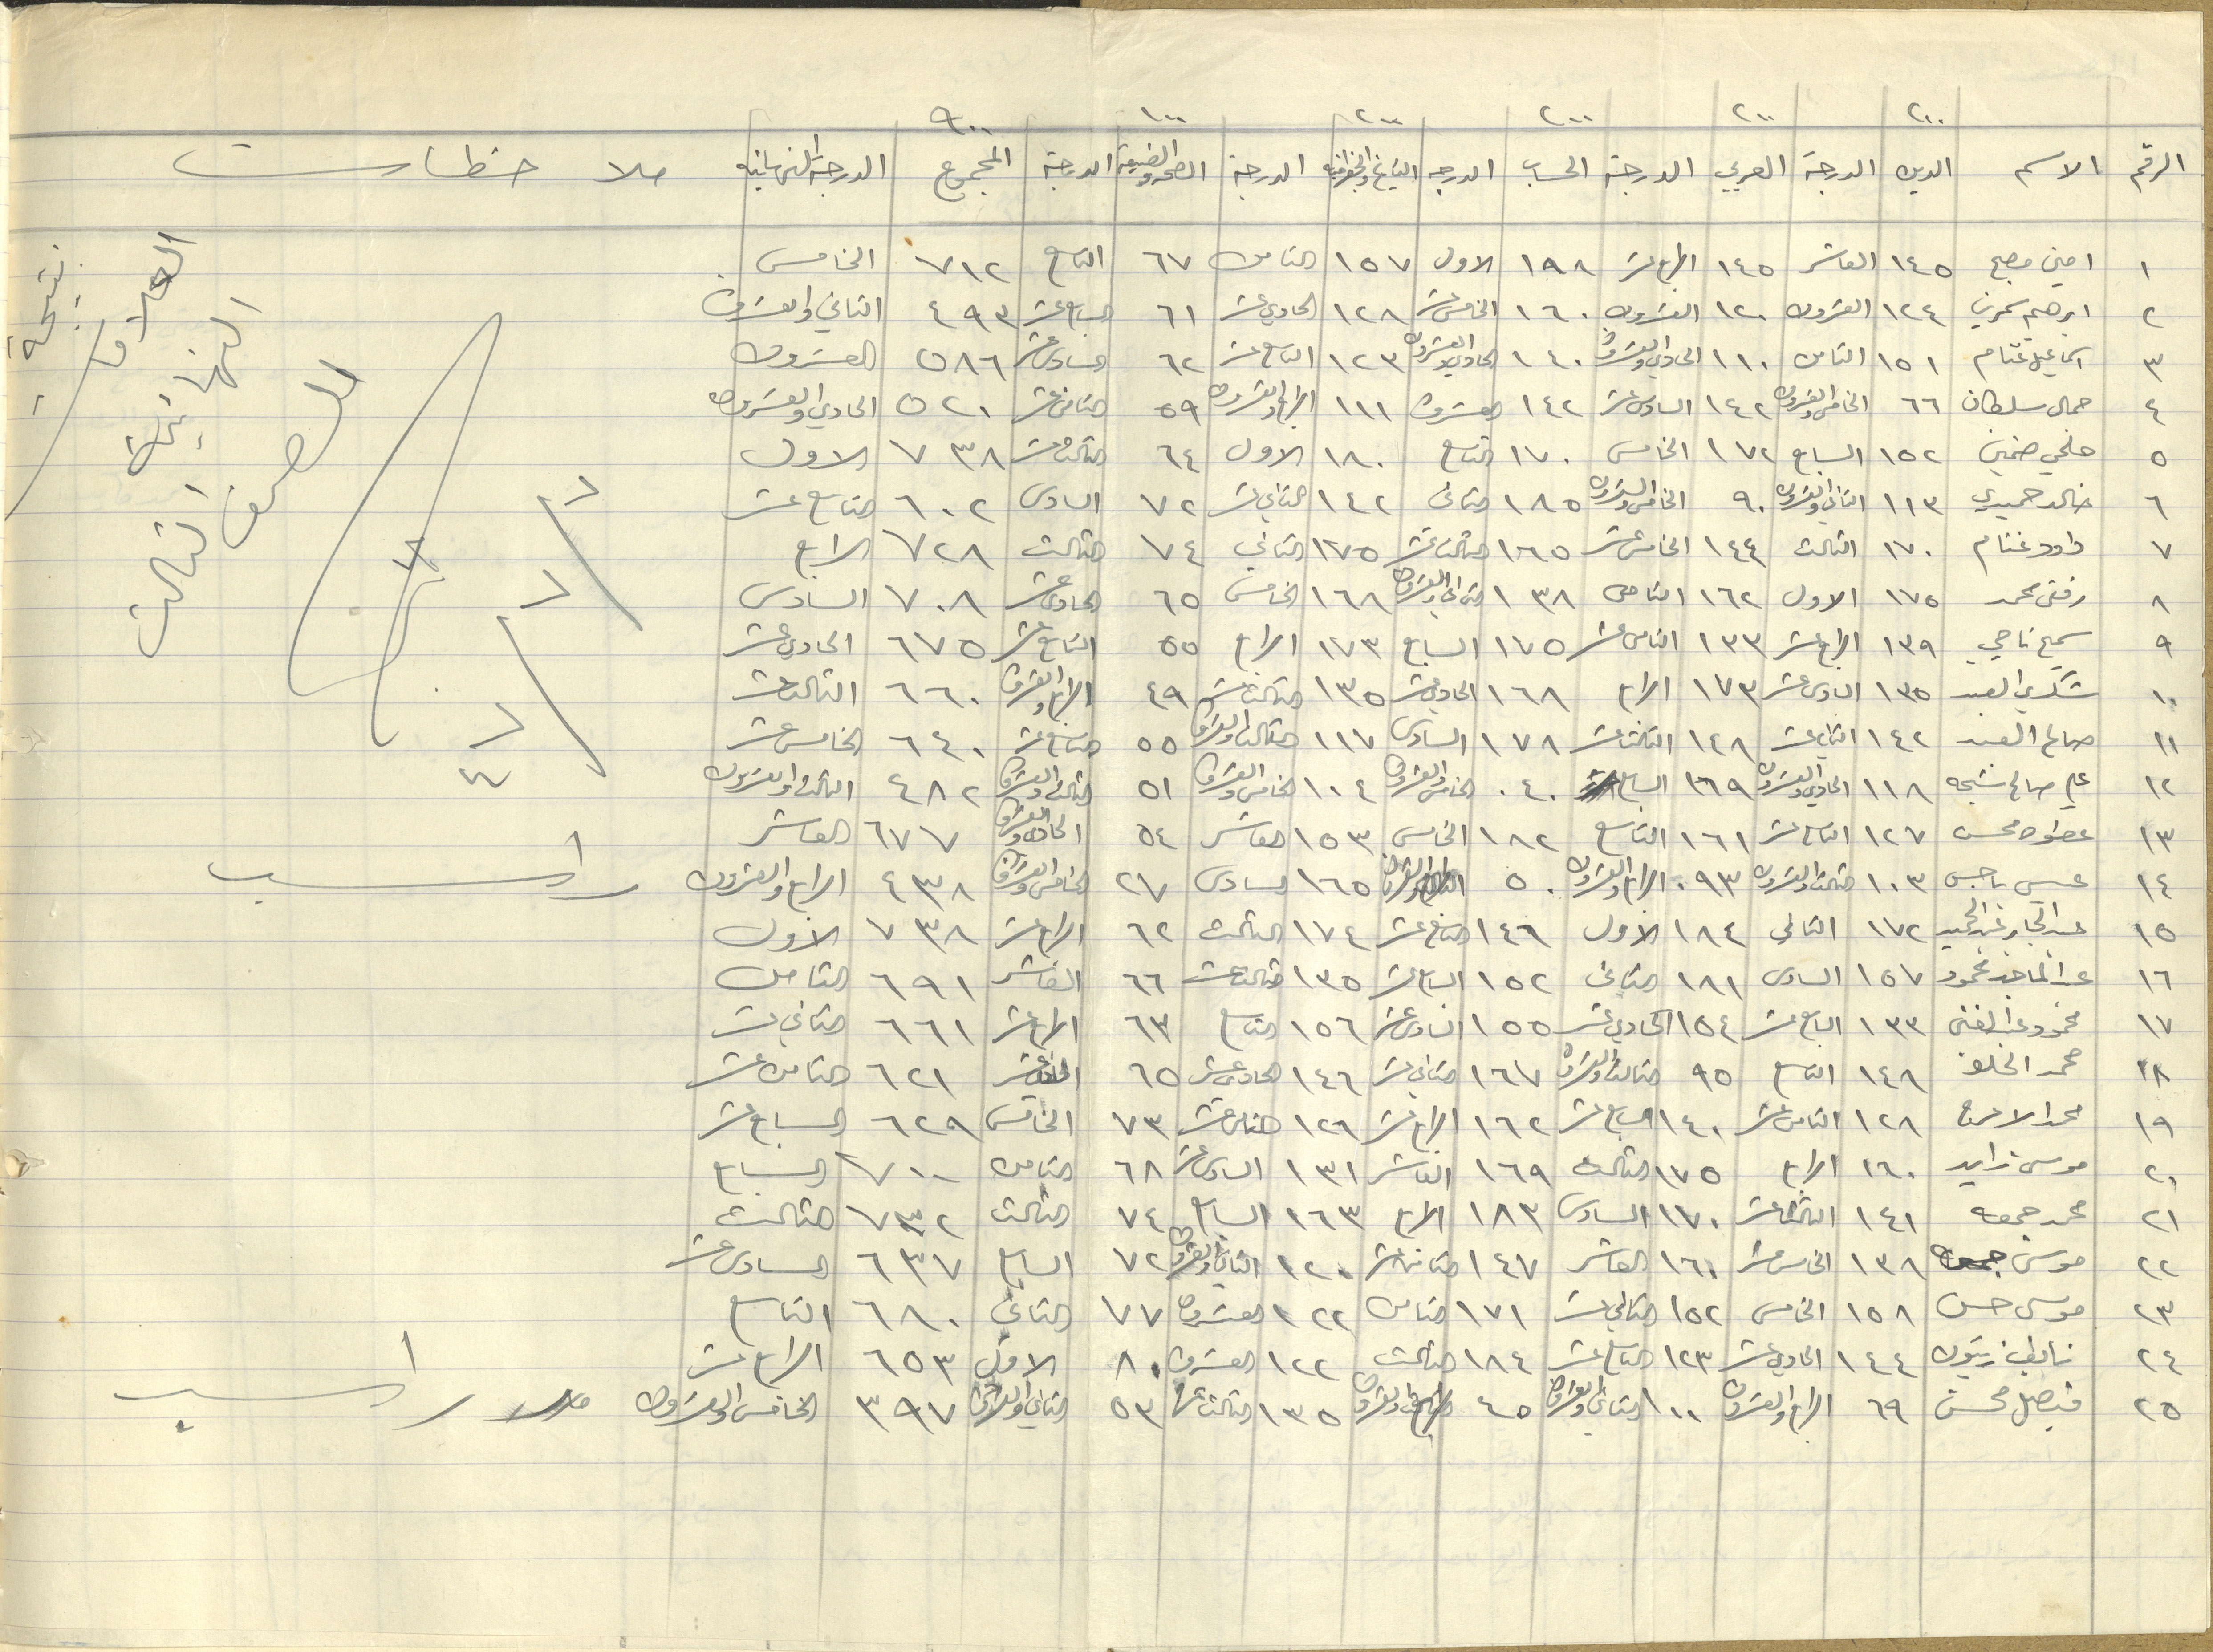 ٢٠٠ ٢٠٠ ٢٠٠ ٢٠٠ ١٠٠ ٩٠٠
الرقم الاسم الدين الدرجة العربي الدرجة الحساب الدرجة التاريخ والجغرافيه الدرجة الصحه والطبيعة الدرجة المجموع الدرجة النهائية ملاحظات
١ امين مصبح ١٤٥ العاشر ١٤٥ الرابع عشر ١٩٨ الاول ١٥٧ الثامن ٦٧ التاسع ٧١٢ الخامس
٢ ابرهيم سمرين ١٢٤ العشرون ١٢٠ العشرون ١٦٠ الخامس عشر ١٢٨ الحادي عشر ٦١ السابع عشر ٤٩٣ الثاني والعشرون
٣ اسماعيل غنام ١٥١ الثامن ١١٠ الحادي والعشرون ١٤٠ الحادي والعشرون ١٢٣ التاسع عشر ٦٢ السادس عشر ٥٨٦ العشرون
٤ جمال سلطان ٦٦ الخامس والعشرون ١٤٢ السادس عشر ١٤٢ العشرون ١١١ الرابع والعشرون ٥٩ الثامن عشر ٥٢٠ الحادي والعشرون
٥ حلمي ١٥٢ السابع ١٧٢ الخامس ١٧٠ التاسع ١٨٠ الاول ٦٤ الثالث عشر ٧٣٨ الاول
٦ خالد حميدي ١١٣ الثاني والعشرون ٩٠ الخامس والعشرون ١٨٥ الثاني ١٤٢ الثاني عشر ٧٢ السادس ٦٠٢ التاسع عشر
٧ داود غنام ١٧٠ الثالث ١٤٤ الخامس عشر ١٦٥ الثالث عشر ١٧٥ الثاني ٧٤ الثالث ٧٢٨ الرابع
٨ رفقي محمد ١٧٥ الاول ١٦٢ الثامن ١٣٨ الثاني والعشرون ١٦٨ الخامس ٦٥ الحادي عشر ٧٠٨ السادس
٩ سميح ناجي ١٣٩ الرابع عشر ١٣٣ الثامن عشر ١٧٥ السابع ١٧٣ الرابع ٥٥ التاسع عشر ٦٧٥ الحادي عشر
١٠ شكري العبد ١٣٥ السادس عشر ١٧٣ الرابع ١٦٨ الحادي عشر ١٣٥ الثالث عشر ٤٩ الرابع والعشرون ٦٦٠ الثالث عشر
١١ صالح العبد ١٤٢ الثاني عشر ١٤٨ الثالث عشر ١٧٨ السادس ١١٧ الثالث والعشرون ٥٥ التاسع عشر ٦٤٠ الخامس عشر
١٢ علي صالح ١١٨ الحادي والعشرون ١٦٩ السابع ٠٤٠ الخامس والعشرون ١٠٤ الخامس والعشرون ٥١ الثالث والعشرون ٤٨٢ الثالث والعشرون
١٣ عطوه محسن ١٢٧ التاسع عشر ١٦١ التاسع ١٨٢ الخامس ١٥٣ العاشر ٥٤ الحادي والعشرون ٦٧٧ العاشر
١٤ عيسى ناجي ١٠٣ الثالث والعشرون ٠٩٣ الرابع والعشرون ٥٠ ١٦٥ السادس ٢٧ الخامس والعشرون ٤٣٨ الرابع والعشرون راسب
١٥ عبد الجابر عبد الحميد ١٧٢ الثاني ١٨٤ الاول ١٤٦ التاسع عشر ١٧٤ الثالث ٦٢ الرابع عشر ٧٣٨ الاول
١٦ عبد الماجد محمود ١٥٧ السادس ١٨١ الثاني ١٥٢ السابع عشر ١٣٥ الثالث عشر ٦٦ العاشر ٦٩١ الثامن
١٧ محمود عبد الغني ١٣٣ السابع عشر ١٥٤ الحادي عشر ١٥٥ السادس عشر ١٥٦ التاسع ٦٣ الرابع عشر ٦٦١ الثاني عشر
١٨ محمد الخلف ١٤٨ التاسع ٩٥ الثالث والعشرون ١٦٧ الثاني عشر ١٤٦ الحادي عشر ٦٥ ٦٢١ الثامن عشر
١٩ محمد الاعرج ١٢٨ الثامن عشر ١٤٠ السابع عشر ١٦٢ الرابع عشر ١٢٦ الثامن عشر ٧٣ الخامس ٦٢٩ السابع عشر
٢٠ موسى زايد ١٦٠ الرابع ١٧٥ الثالث ١٦٩ العاشر ١٣١ السادس عشر ٦٨ الثامن ٧٠٠ السابع
٢١ محمد جمعه ١٤١ الثالث عشر ١٧٠ السادس ١٨٣ الرابع ١٦٣ السابع ٧٤ الثالث ٧٣٢ الثالث
٢٢ موسى ١٣٨ الخامس عشر ١٦٠ العاشر ١٤٧ الثامن عشر ١٢٠ الثاني والعشرون ٧٢ السابع ٦٣٧ السادس عشر
٢٣ موسى حسن ١٥٨ الخامس ١٥٢ الثاني عشر ١٧١ الثامن ١٢٢ العشرون ٧٧ الثاني ٦٨٠ التاسع
٢٤ نايف زيتون ١٤٤ الحادي عشر ١٢٣ التاسع عشر ١٨٤ الثالث ١٢٢ العشرون ٨٠ الاول ٦٥٣ الرابع عشر
٢٥ فيصل محسن ٦٩ الرابع والعشرون ١٠٠ الثاني والعشرون ٤٥ الرابع والعشرون ١٣٥ الثالث عشر ٥٣ الثاني والعشرون ٣٩٧ الخامس والعشرون راسب
نتيجة
العلامات
النهائية
للصف الثالث